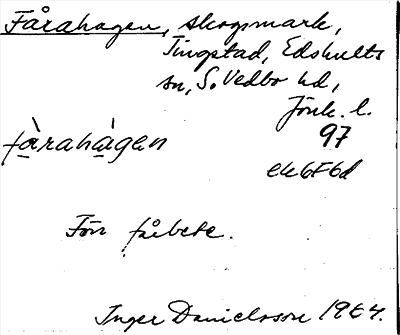 Fårahagen, skogsmark,
Tingstad, Edshults
sn, S. Vedbo hd,
Jönk. l.
fàrahágen 97
ek6F6d
Förr fårbete.
Inger Danielsson 1964.